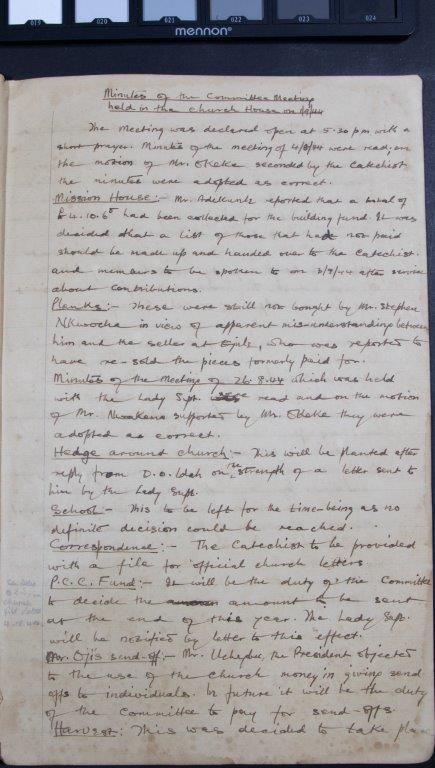 019 020 021 022 023 024
mennon
Minutes of the Committee Meeting
held in the church House on
The Meeting was declared open at 5.30 pm with a
short prayer. Minutes of the meeting of 4/8/44 were read; on
the motion of Mr. Ekeke seconded by the Catechist
the minutes were adopted as correct.
Mission House:- Mr. Adebunle reported that a total of
£4.10.6d had been collected for the building fund. It was
decided that a list of those that had not paid
should be made up and handed over to the Catechist.
and members to be spoken to on 3/9/44 after service
about contributions.
Planks:- These were still not bought by Mr. Stephen
Nkwocha in view of apparent mis-understanding between
him and the seller at Ejule, who was reported to
have re-sold the pieces formerly paid for.
Minutes of the Meeting of 26.8.44 which was held
with the Lady Supt. read and on the motion
of Mr. Nwakama supported by Mr. Ekeke they were
adopted as correct.
Hedge around church:- This will be planted after
reply from D.O. Idah on the strength of a letter sent to
him by the Lady Supt.
School:- This to be left for the time-being as no
definite decision could be reached.
Correspondence:- The Catechist to be provided
with a file for official church letters.
P.C.C. Fund:- It will be the duty of the Committee
to decide the amount to be sent
at the end of this year. The Lady Supt.
will be notified by letter to this effect.
Mr. Oji's send-off:- Mr. Uchegbu, the President objected
to the use of the Church money in giving send
offs to individuals. In future it will be the duty
of the Committee to pay for send-offs
Harvest: This was decided to take place